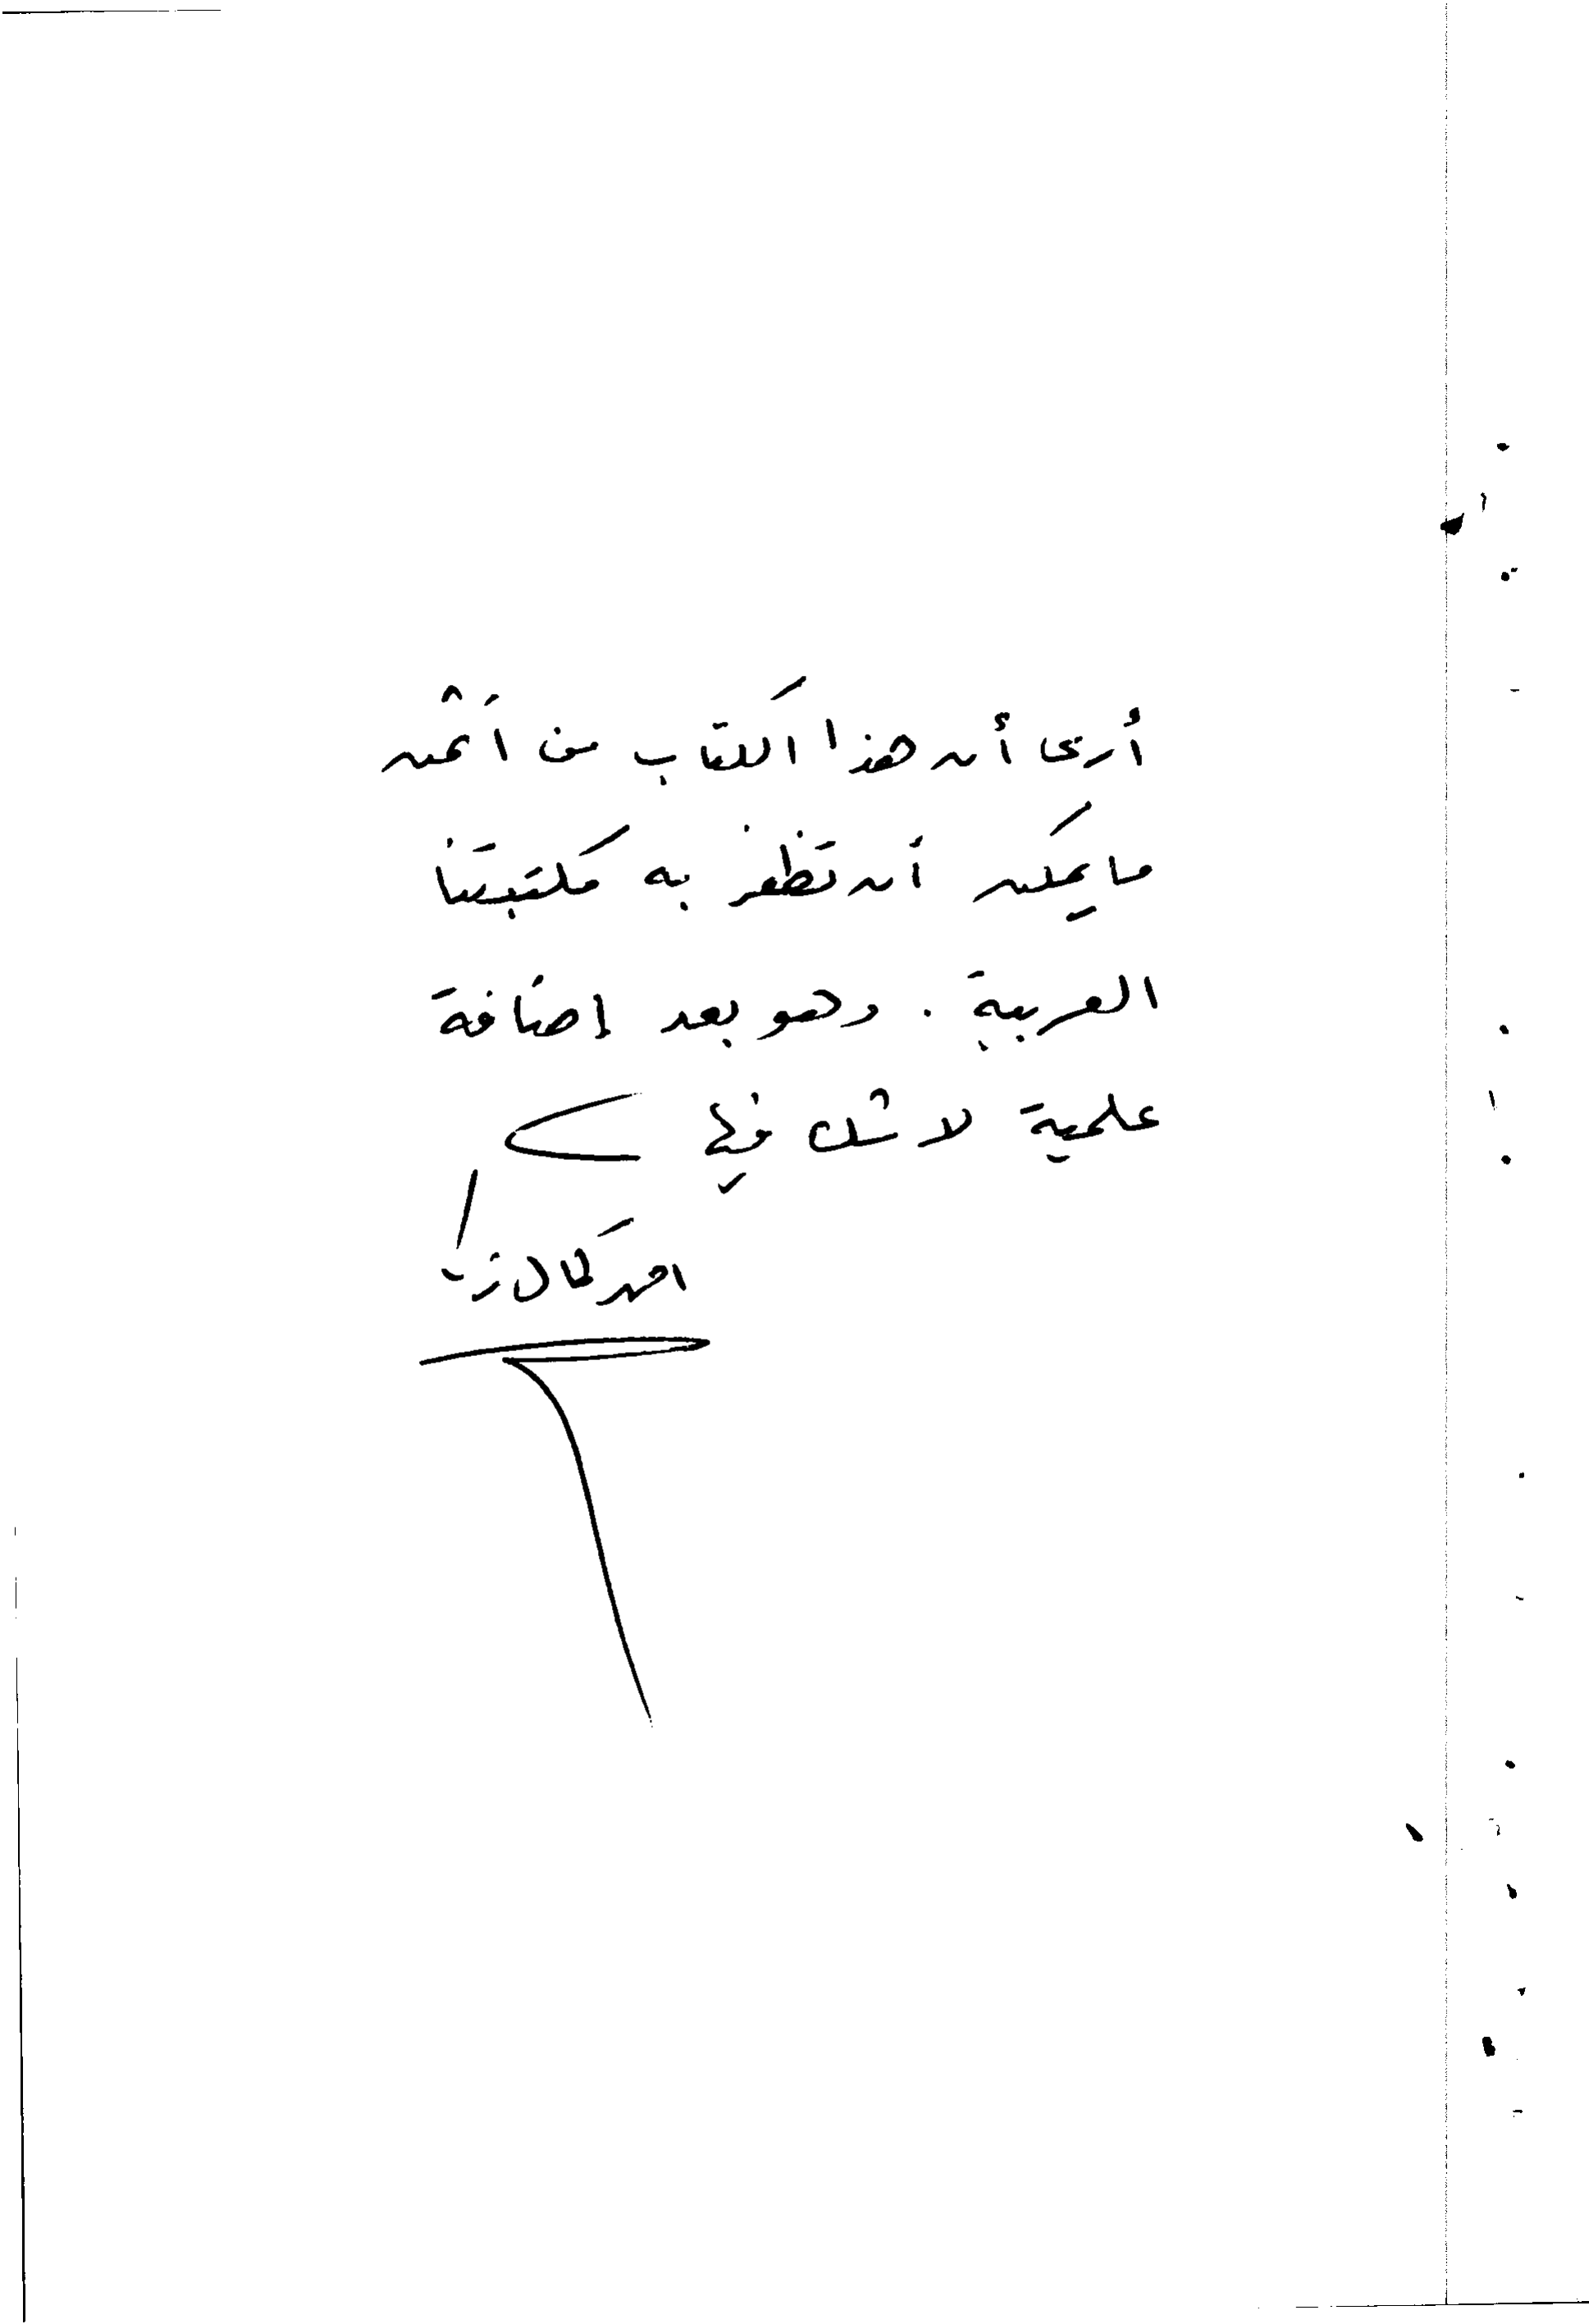 أرى أن هذا الكتاب من أثمن
ما يمكن أن تظفر به مكتبتنا
العربية . وهو بعد إضافة
علمية لا شك فيها
احمد كمال زكي